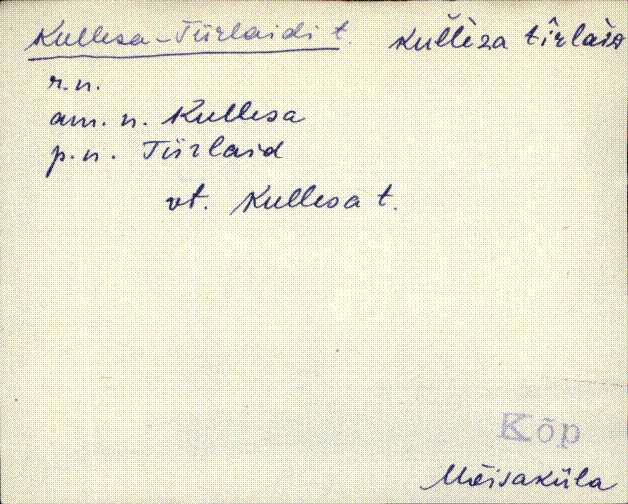 Kullesa-Tiirlaidi t. kulleza
r.n.
am. n. Kullesa
p.n. Tiirlaid
vt. Kullesa t.
Kõp
Mõisaküla